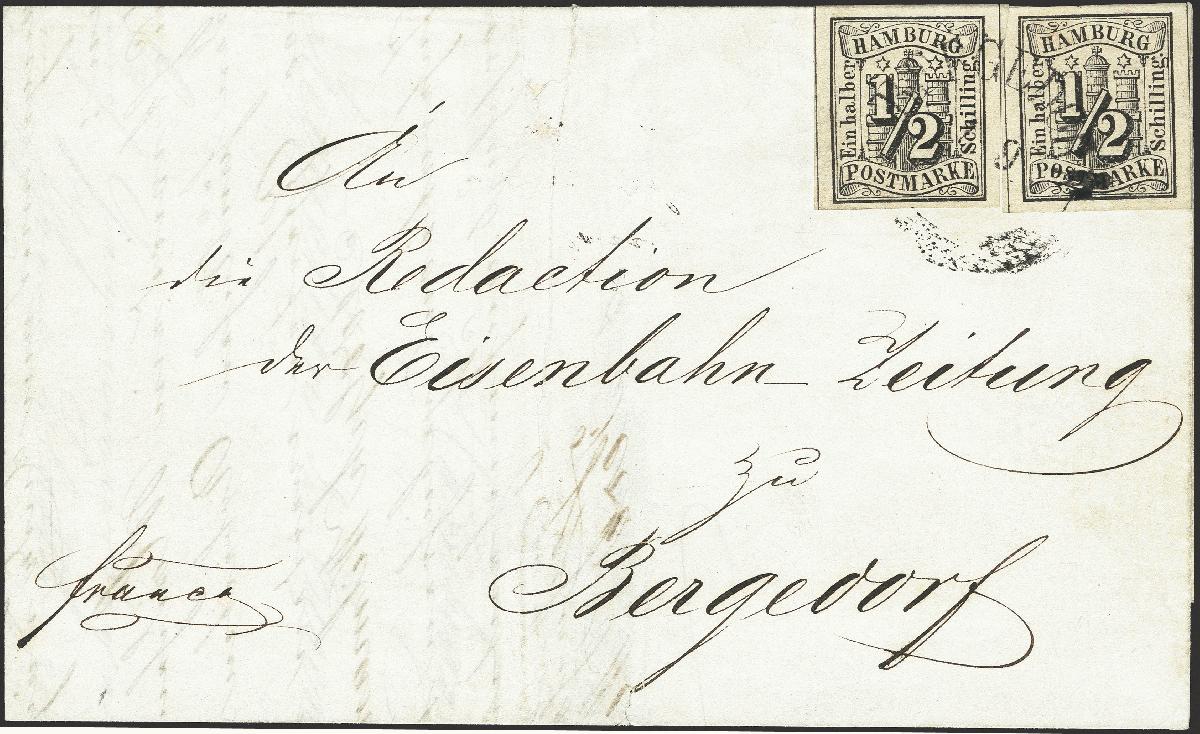 HAMBURG
Ein halber
1/2
Schilling
POSTMARKE
HAMBURG
Ein halber
1/2
Schilling
POSTMARKE
An
die Redaction
der Eisenbahn Zeitung
zu
Bergedorf
franco